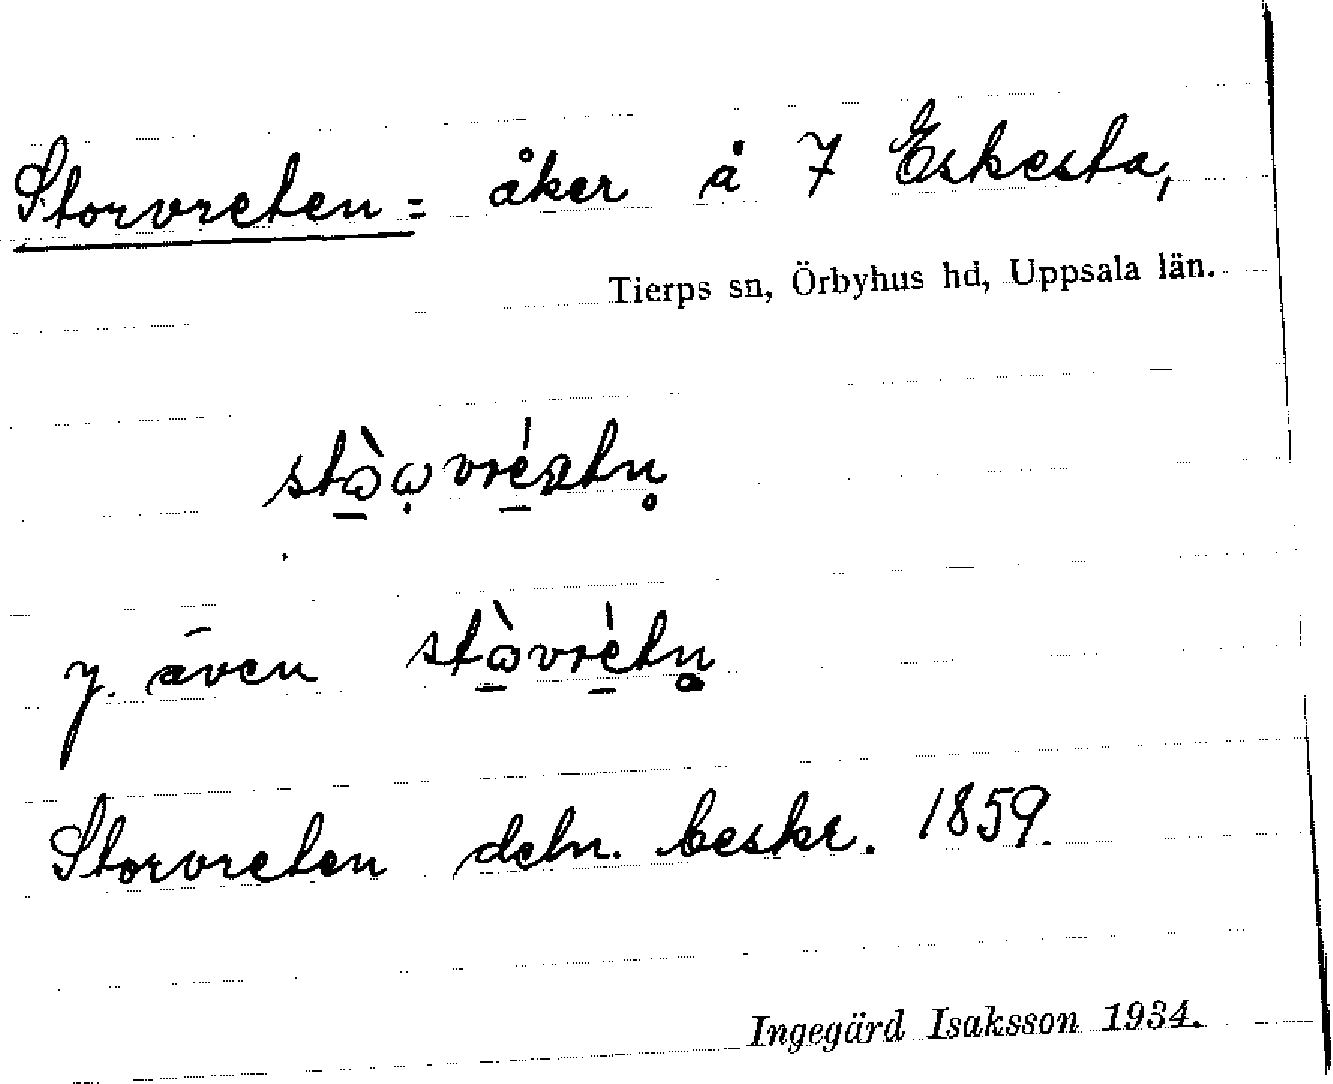 Storvreten = åker å 7 Eskesta,
Tierps sn, Örbyhus hd, Uppsala län.
y. även
Storvreten deln. beskr. 1859.
Ingegärd Isaksson 1934.